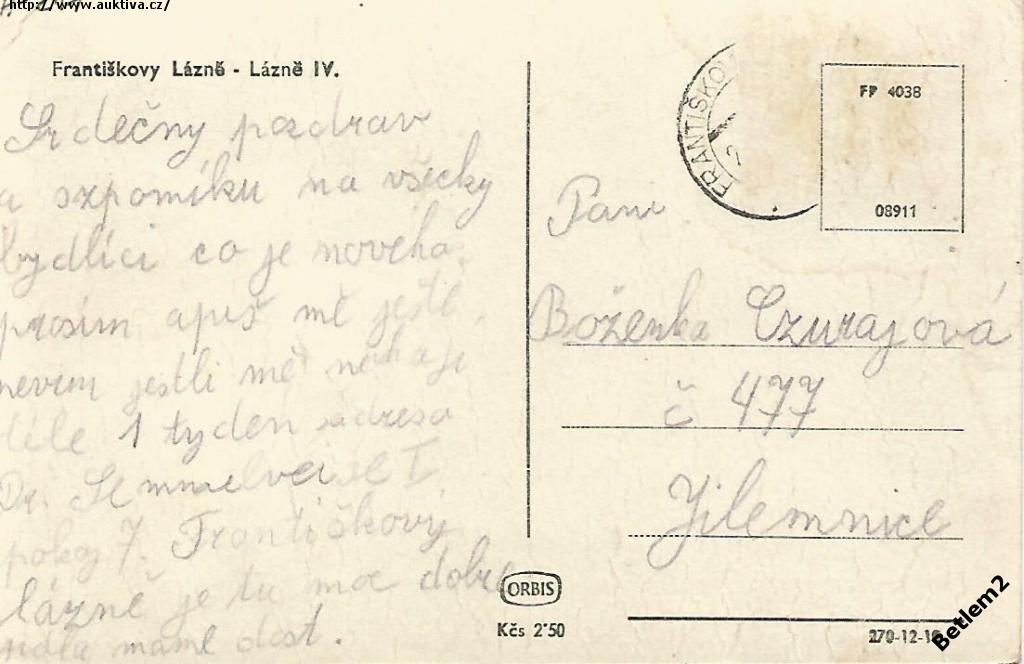 http://www.auktiva.cz/
Františkovy Lázně - Lázně IV.
Srdečny pozdrav
a szpomíku na všecky
bydlíci co je noveho.
prosim apiš mě jestli
nevim jestli mě nechaji
déle 1 tyden adresa
Dr. Semmelveise I
pokoj 7. Františkovy
lázně je tu moc dobře
jidla mame dost.
FRANTIŠKOV
2
FP 4038
08911
Pani
Boženka Czurajová
č 477
Jilemnice
ORBIS
Kčs 2·50
270-12-16
Betlem2